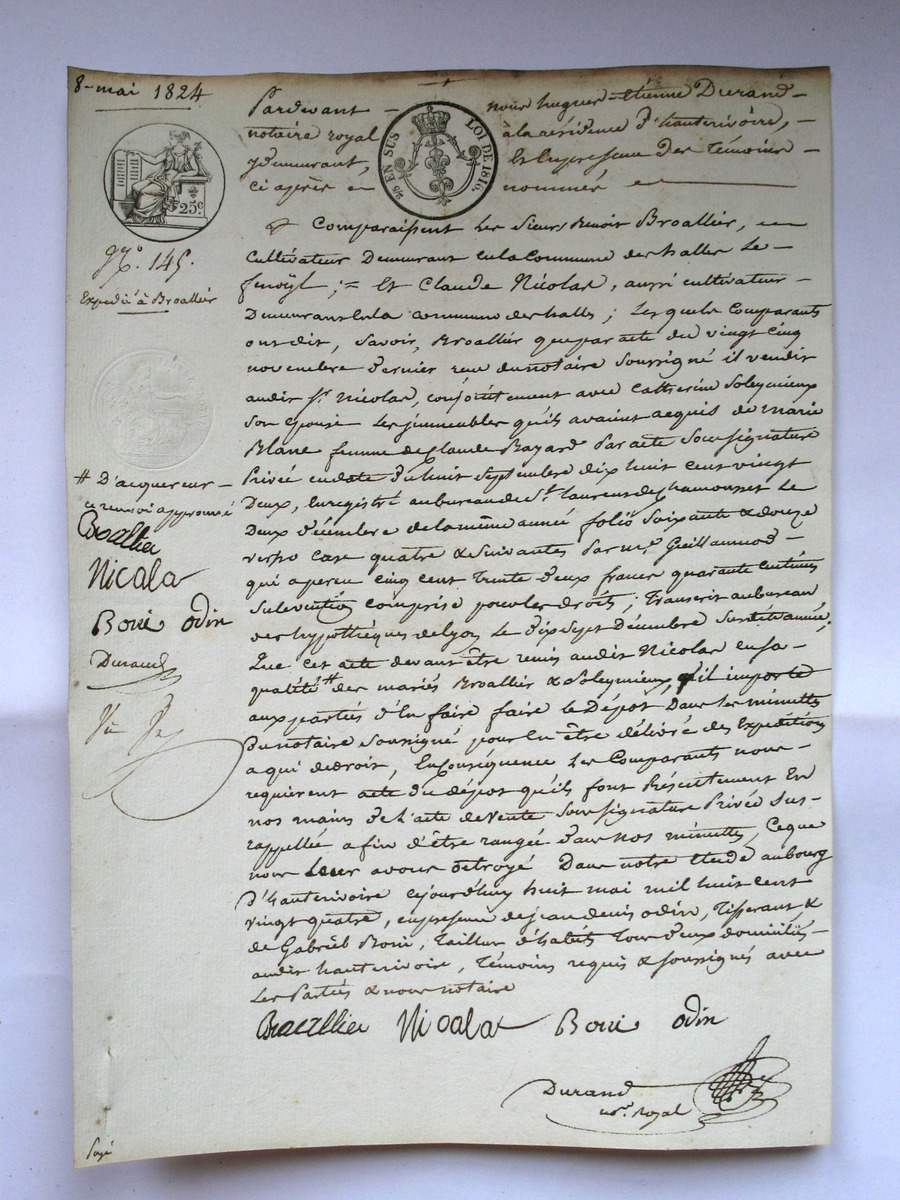 8 mai 1824
Pardevant nous hugues étienne Durand
notaire royal à la résidence d'hauterivoire,
y demurant, Et En presense des témoins
ci après nommés
25 EN SUS LOI DE 1816.
25c
N.º 145.
Expedié à Broallier
Comparaissent Les Sieurs Benoit Broallier,
cultivateur Demeurant En la Commune des halles Le
fenoÿl ; = Et Claude Nicolas, aussi cultivateur
Demeurant En la commune des halles ; Les quels Comparants
ont dit, savoir, Broallier que par acte du vingt cinq
novembre dernier reçu du notaire soussigné il vendit
audit Sr. Nicolas, conjointement avec Catherine Soleymieux
son épouse Les jmmeubles qu'ils avaient acquis de marie
Blanc femme de Claude Bayard Par acte sous signature
Privée en date du huit septembre dix huit cent vingt
Deux, Enregistré au bureau de St. Laurent de chamousset Le
Deux décembre de la même année folio soixante & douze
verso case quatre & suivantes Par mr. Guillaumod
qui a perçu cinq cent trente deux francs quarante centimes
subvention comprise pour les droits ; transcrit au bureau
des hypothèques de lyon Le dix sept Décembre susdite année ;
Que cet acte devant être remis audit Nicolas en sa
qualité # des mariés Broallier & Soleymieux, il importe
aux parties d'En faire faire le Dépot Dans les minuttes
du notaire soussigné pour En être délivré des Expeditions
a qui de droit, En conséquence Les Comparants nous
requièrent acte du dépot qu'ils font Présentement En
nos mains de L'acte de vente sous signature Privée sus
rappellée afin d'être rangée dans nos minuttes, Ceque
nous Leur avons octroyé Dans notre Etude au bourg
d'hauterivoire cejourd'huy huit mai mil huit cent
vingt quatre, en presense de jean denis odin, tisserant &
de Gabriel Boni, tailleur d'habits tous deux domiciliés
audit hauterivoire, témoins requis & soussignés avec
Les Parties & nous notaire
# D'acquereur
ce renvoi approuvé
Broallier
Nicala
Boni odin
Durand
Broallier Nicala Boni odin
Durand
nre. Royal